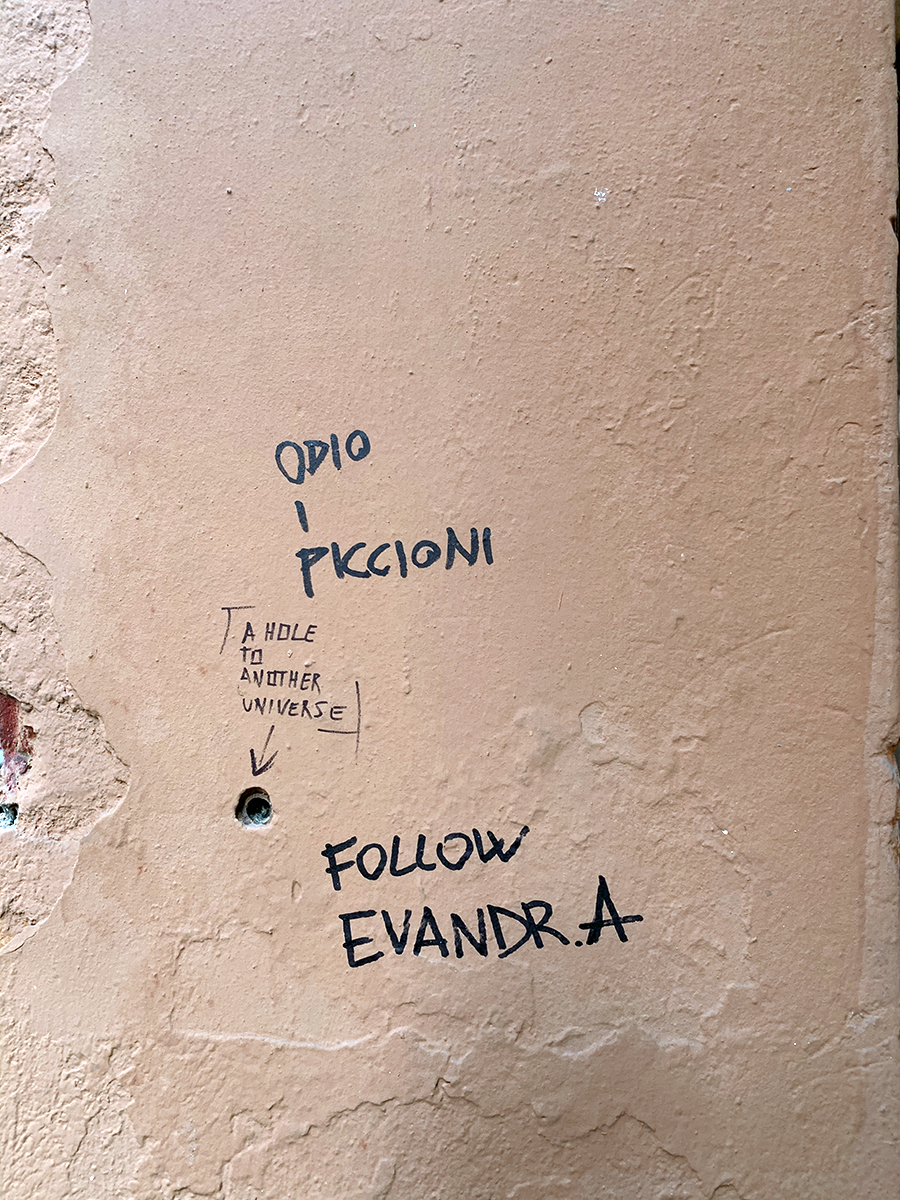 ODIO
I
PICCIONI
A HOLE
TO
ANOTHER
UNIVERSE
FOLLOW
EVANDR.A